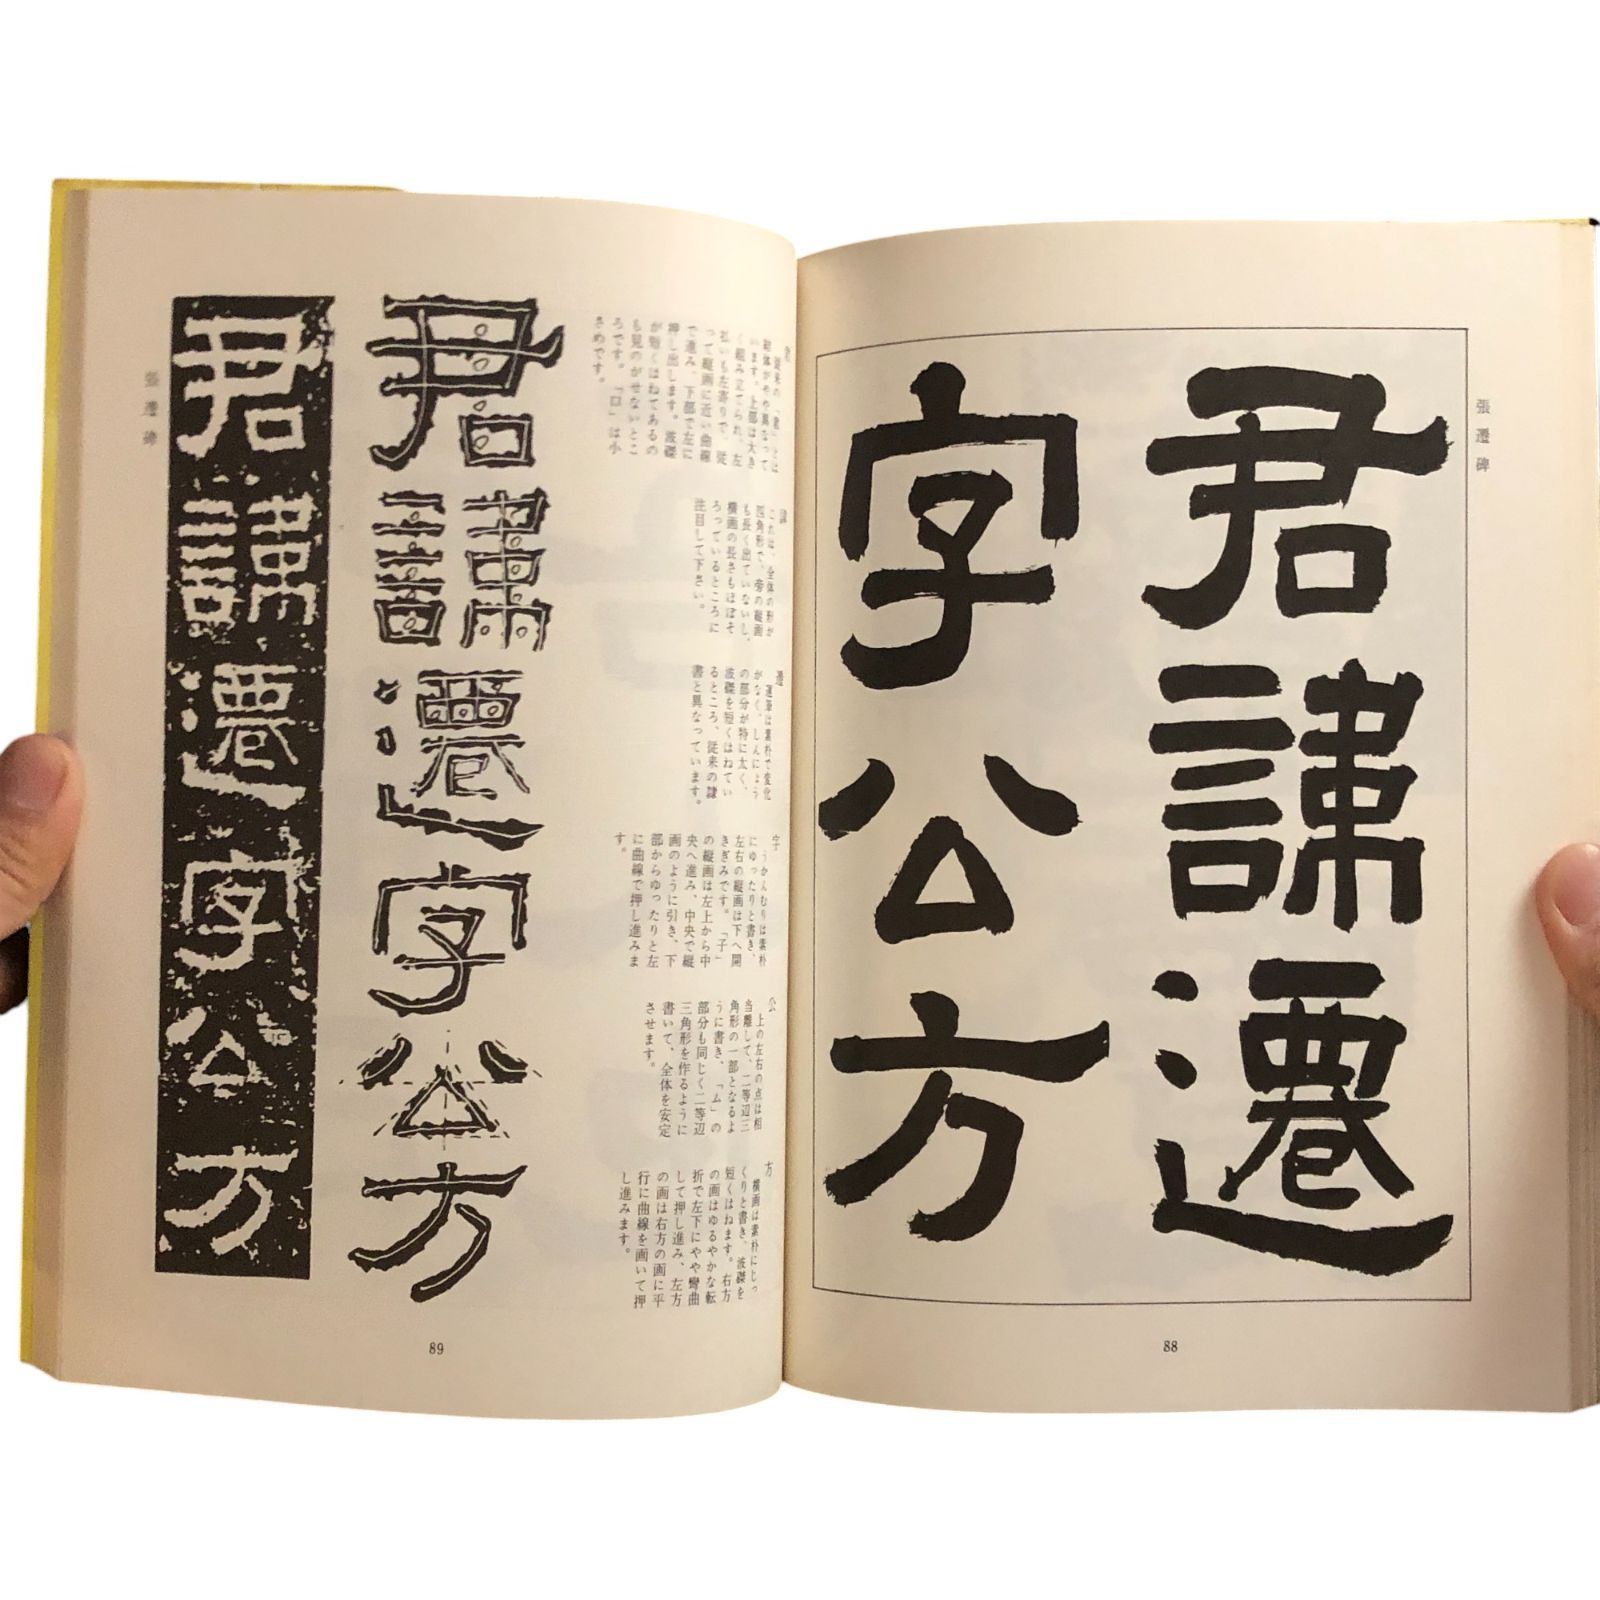 張遷碑
君諱遷
字公方
88
君
従来の「君」とは
結体がやや異なって
います。上部は大き
く組み立てられ、左
払いも左寄りで、従
って縦画に近い曲線
で進み、下部で左に
押し出します。波磔
が短くはねてあるの
も見のがせないとこ
ろです。「口」は小
さめです。
諱
これは、全体の形が
四角形で、旁の縦画
も長く出ていないし、
横画の長さもほぼそ
ろっているところに
注目して下さい。
遷
運筆は素朴で変化
がなく、しんにょう
の部分が特に太く、
波磔を短くはねてい
るところ、従来の隷
書と異なっています。
字
うかんむりは素朴
にゆったりと書き、
左右の縦画は下へ開
きぎみです。「子」
の縦画は左上から中
央へ進み、中央で縦
画のように引き、下
部からゆったりと左
に曲線で押し進みま
す。
公
上の左右の点は相
当離して、二等辺三
角形の一部となるよ
うに書き、「ム」の
部分も同じく二等辺
三角形を作るように
書いて、全体を安定
させます。
方
横画は素朴にじっ
くりと書き、波磔を
短くはねます。右方
の画はゆるやかな転
折で左下にやや彎曲
して押し進み、左方
の画は右方の画に平
行に曲線を画いて押
し進みます。
君諱遷字公方
君諱遷字公方
張遷碑
89